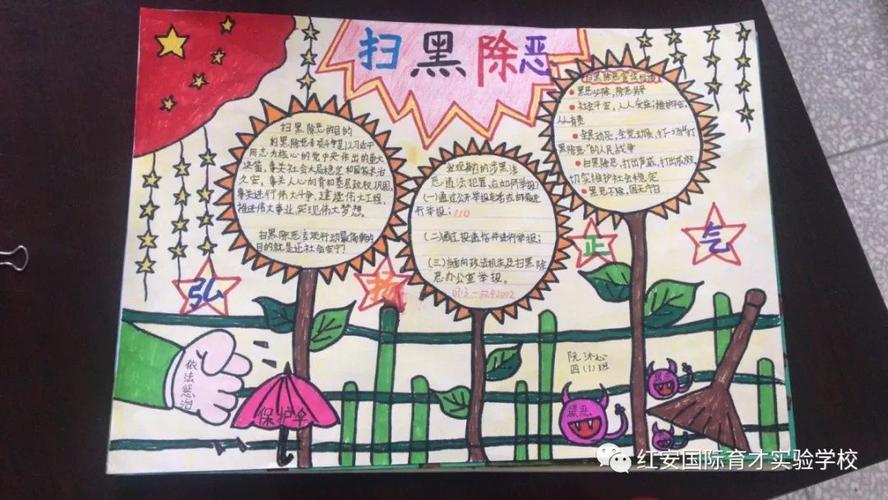 扫黑除恶
扫黑除恶的目的
扫黑除恶专项斗争是以习近平
同志为核心的党中央作出的重大
决策，事关社会大局稳定和国家长治
久安，事关人心向背和基层政权巩固，
事关进行伟大斗争，建设伟大工程，
推进伟大事业，实现伟大梦想。
扫黑除恶专项行动最简单的
目的就是还社会安宁！
发现新的涉黑涉
恶违法犯罪，应如何举报
(一)通过公开举报电话或邮箱进
行举报：110
(二)通过投递信件进行举报；
(三)当面向政法机关及扫黑除
恶办公室举报。
扫黑除恶宣传标语
黑恶必除，除恶务尽
社会平安，人人受益；维护平安，
人人有责
全民动员，全党动员，打一场"扫
黑除恶"的人民战争
扫黑除恶，打出声威，打出成效，
切实维护社会稳定
黑恶不除，国无宁日
弘
扬
正
气
依法惩治
保护伞
阮沐心
四(1)班
黑恶
红安国际育才实验学校